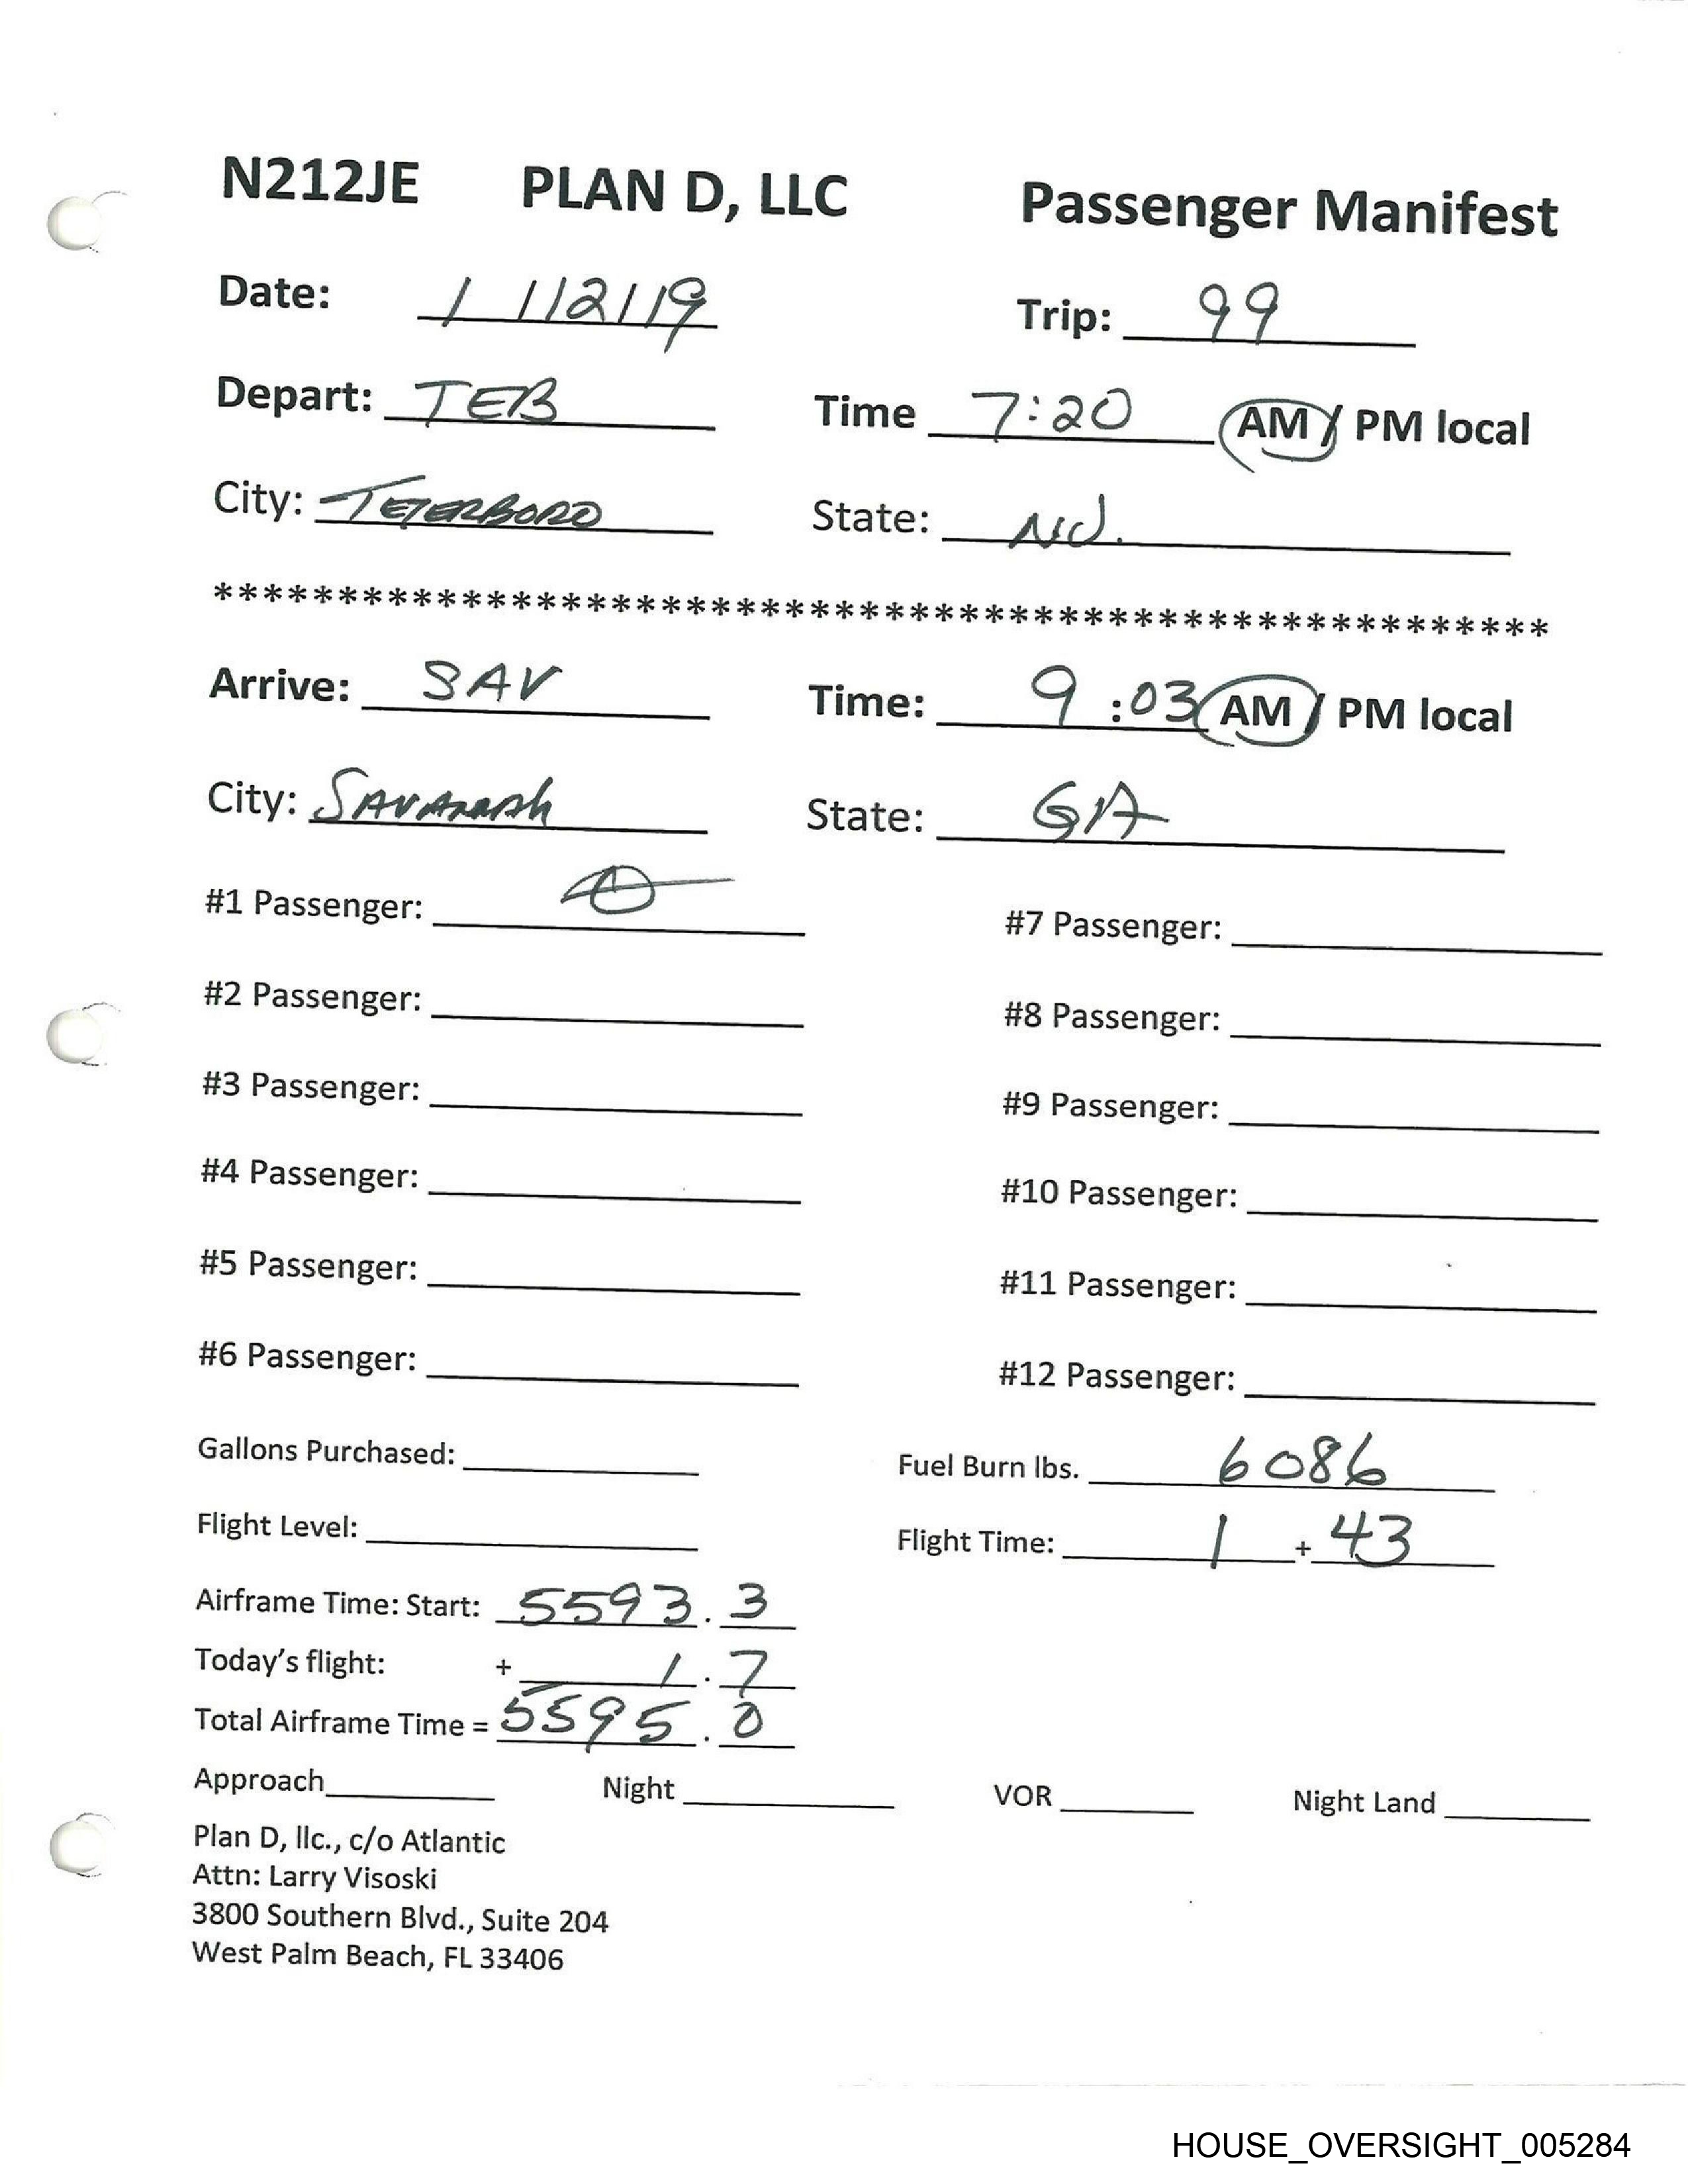 N212JE PLAN D, LLC Passenger Manifest
Date: 1 / 12 / 19 Trip: 99
Depart: TEB Time 7:20 AM / PM local
City: TETERBORO State: NJ.
******************************************************
Arrive: SAV Time: 9 :03 AM / PM local
City: SAVANNAH State: GA
#1 Passenger: #7 Passenger:
#2 Passenger: #8 Passenger:
#3 Passenger: #9 Passenger:
#4 Passenger: #10 Passenger:
#5 Passenger: #11 Passenger:
#6 Passenger: #12 Passenger:
Gallons Purchased: Fuel Burn lbs. 6086
Flight Level: Flight Time: 1 + 43
Airframe Time: Start: 5593.3
Today's flight: + 1.7
Total Airframe Time = 5595.0
Approach Night VOR Night Land
Plan D, llc., c/o Atlantic
Attn: Larry Visoski
3800 Southern Blvd., Suite 204
West Palm Beach, FL 33406
HOUSE_OVERSIGHT_005284